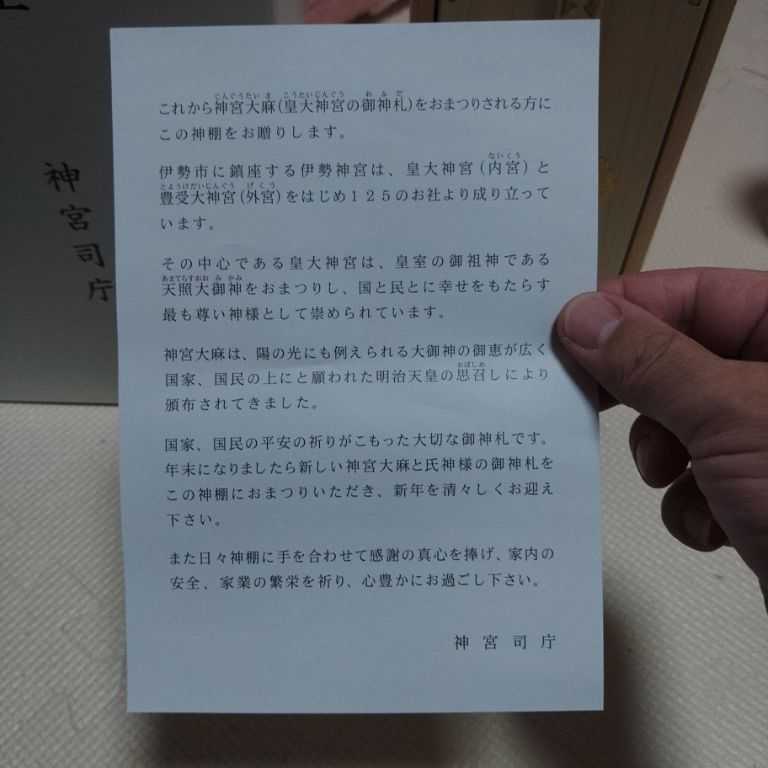 これから神宮大麻(皇大神宮の御神札)をおまつりされる方に
この神棚をお贈りします。
伊勢市に鎮座する伊勢神宮は、皇大神宮(内宮)と
豊受大神宮(外宮)をはじめ125のお社より成り立って
います。
その中心である皇大神宮は、皇室の御祖神である
天照大御神をおまつりし、国と民とに幸せをもたらす
最も尊い神様として崇められています。
神宮大麻は、陽の光にも例えられる大御神の御恵が広く
国家、国民の上にと願われた明治天皇の思召しにより
頒布されてきました。
国家、国民の平安の祈りがこもった大切な御神札です。
年末になりましたら新しい神宮大麻と氏神様の御神札を
この神棚におまつりいただき、新年を清々しくお迎え
下さい。
また日々神棚に手を合わせて感謝の真心を捧げ、家内の
安全、家業の繁栄を祈り、心豊かにお過ごし下さい。
神宮司庁
神宮司庁